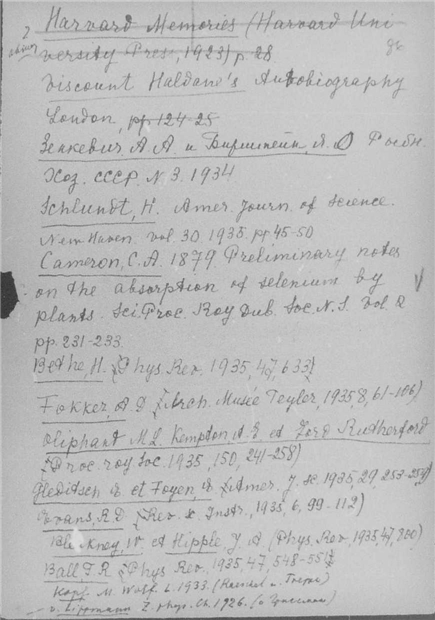 Harvard Memories (Harvard Uni
versity Pres, 1923) p. 28
Viscount Haldane's Autobiography
London, pp. 124-25
Зенкевич, А А и Бирштейн, Я. О Рыбн.
Хоз. СССР. N 3. 1934
Schlundt, H. Amer. Journ. of Science.
New Haven. Vol. 30 1935 pp 45-50
Cameron, C. A. 1879 Preliminary notes
on the absorption of selenium by
plants. Sci Proc. Roy Dub. Soc. N.S. Vol. 2
pp. 231-233.
Bethe, H. Phys. Rev. 1935, 47, 633
Fokker, A D Arch. Musée Teyler, 1935, 8, 61-106)
Oliphant M L. Kempton, A. E. et Lord Rutherford
Proc. roy Soc. 1935, 150, 241-258)
Gleditsch E et Foyen, E Amer. J. sc. 1935, 29, 253-
Evans, R D Rev. s. Instr., 1935, 6, 99-112)
Bleakney, W et Hipple, J A (Phys. Rev., 1935, 47, 800)
Ball, T. R Phys Rev. 1935, 47, 548-
M. Wolf. L. 1933.
v. Hippmann Z. phys. Ch. 1926.